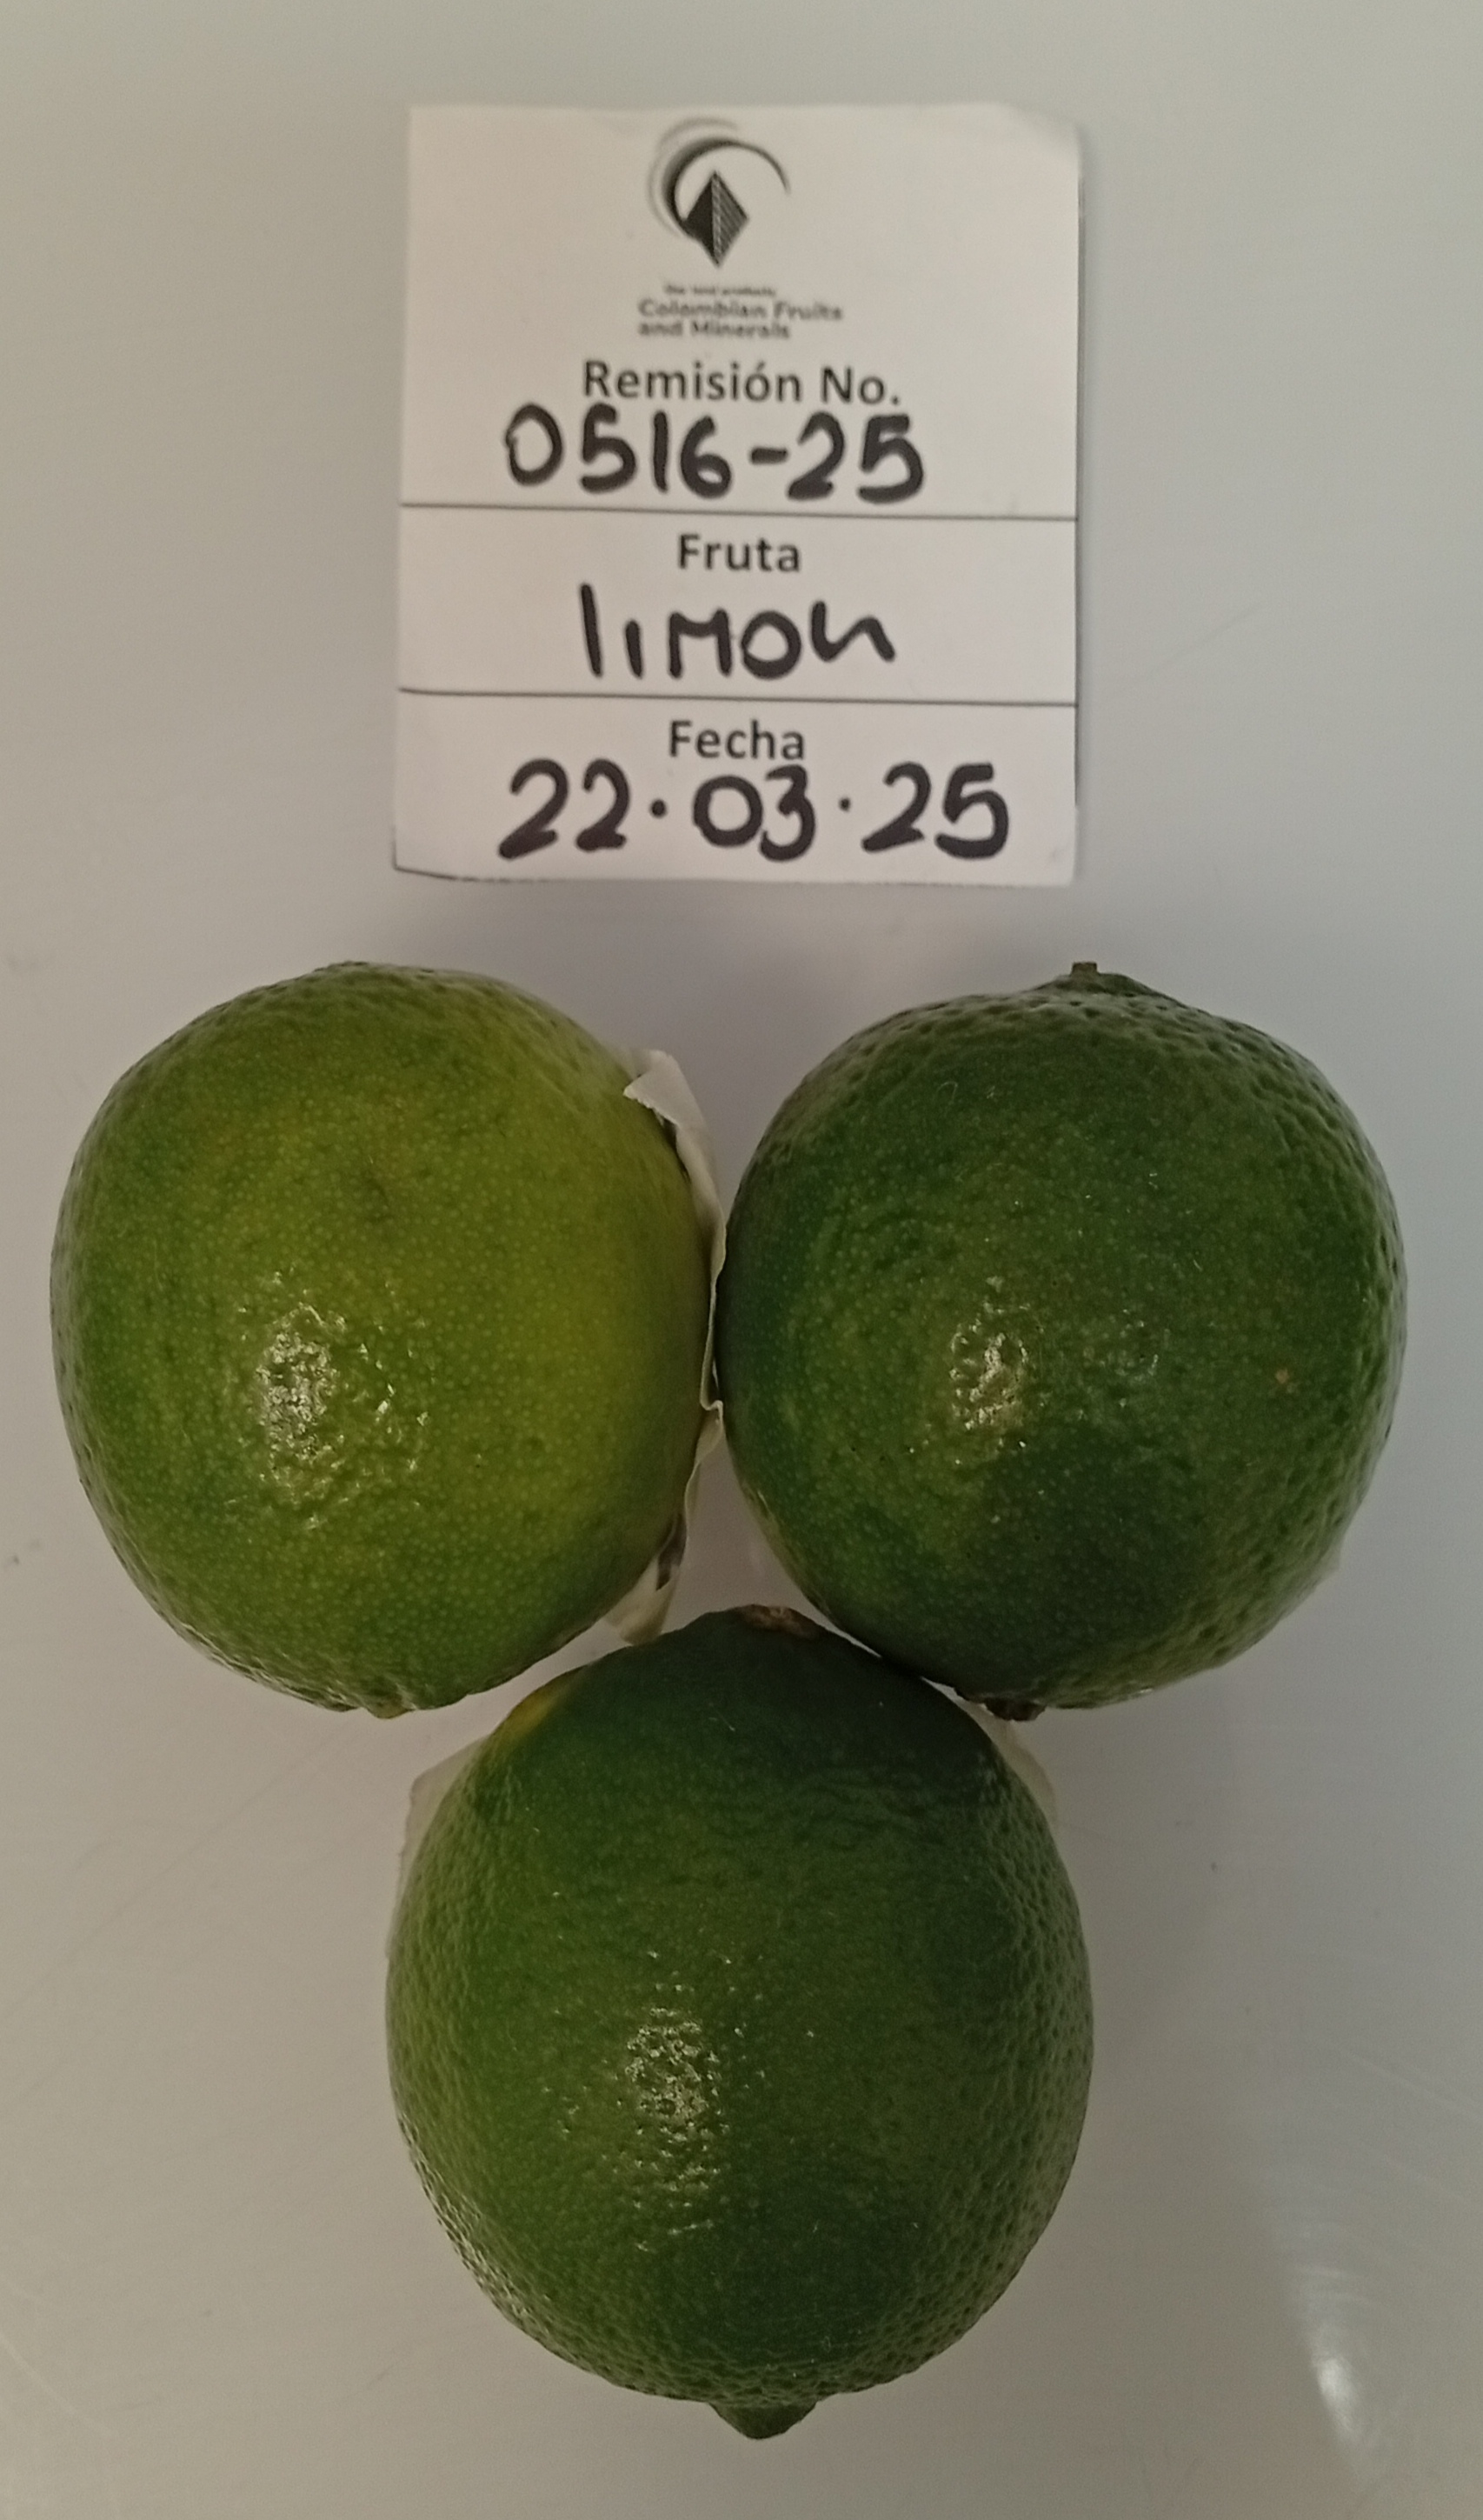 Colombian Fruits
and Minerals
Remisión No.
0516-25
Fruta
limon
Fecha
22.03.25